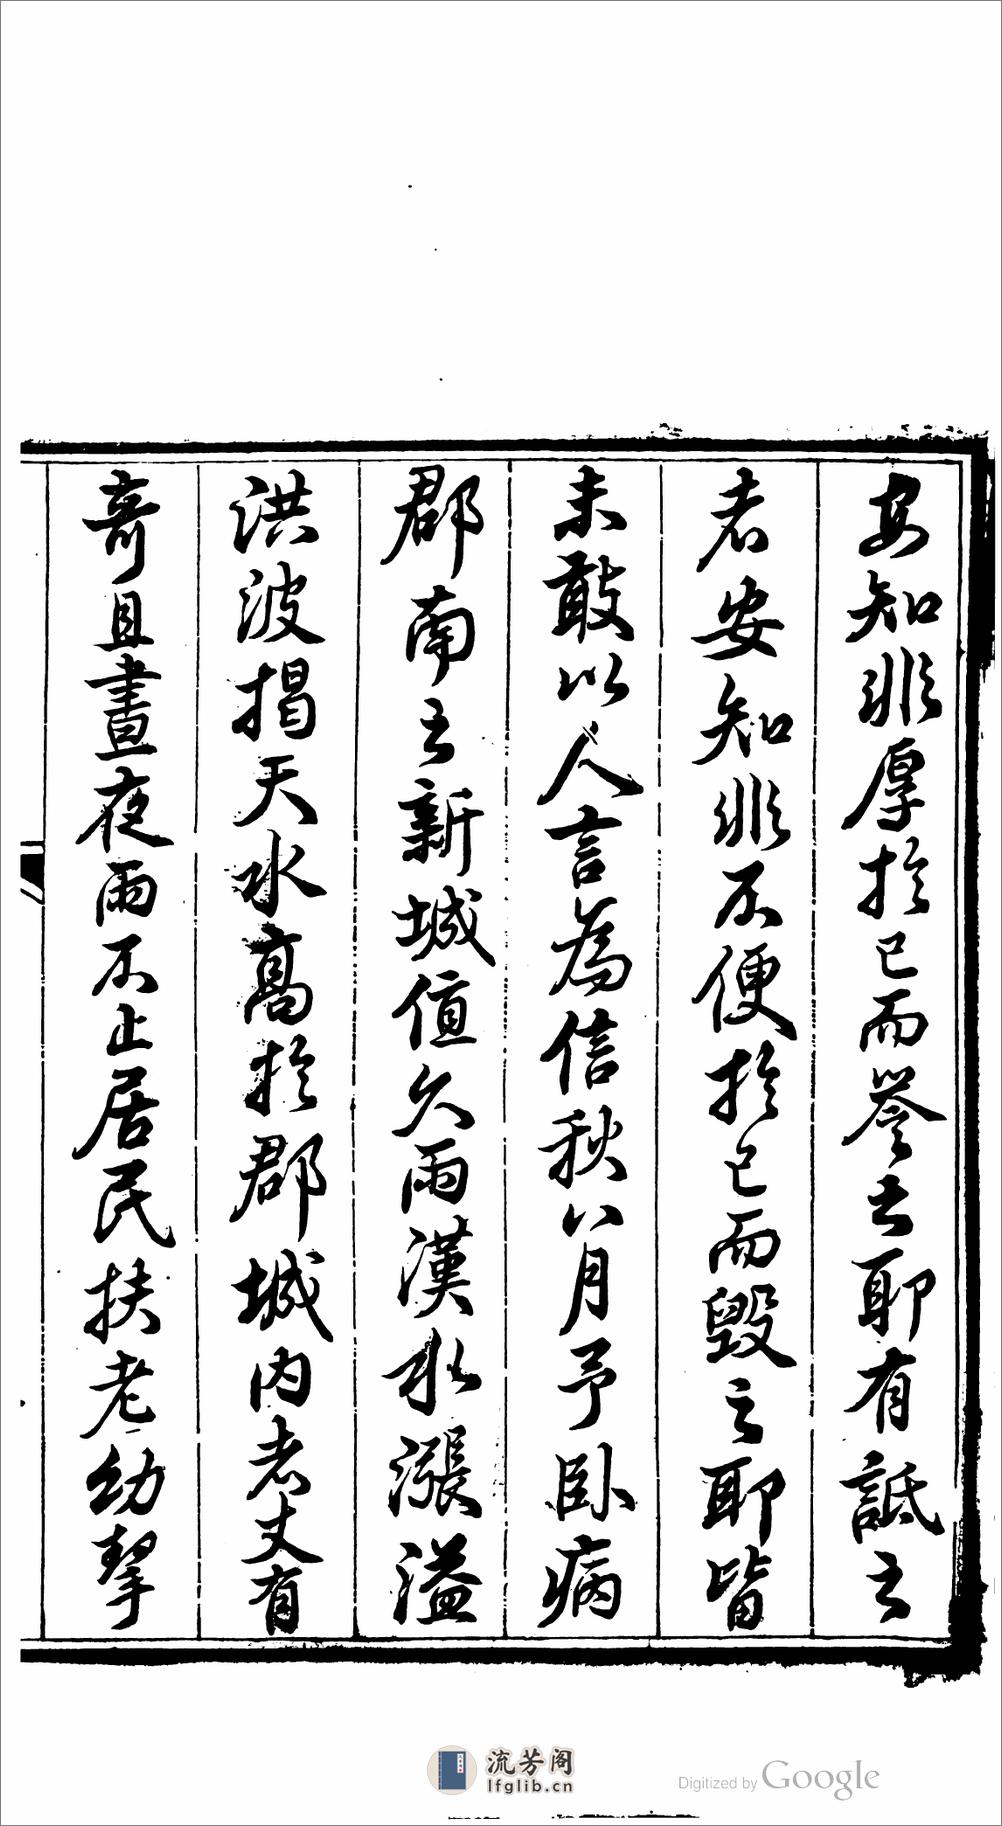 安知非厚於己而譽之耶有詆之
者安知非不便於己而毀之耶皆
未敢以人言為信秋八月予臥病
郡南之新城值久雨漢水漲溢
洪波揭天水高於郡城內者丈有
奇且晝夜雨不止居民扶老幼挈
流芳阁
lfglib.cn
Digitized by Google